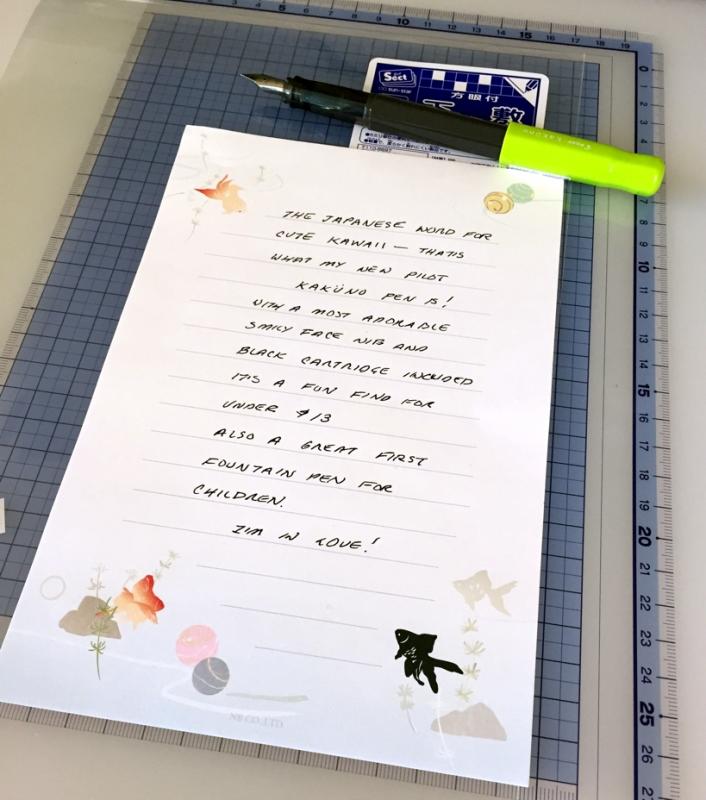 Sect
sun-star
方眼付
下敷
THE JAPANESE WORD FOR
CUTE KAWAII — THAT'S
WHAT MY NEW PILOT
KAKÜNO PEN IS!
WITH A MOST ADORABLE
SMILY FACE NIB AND
BLACK CARTRIDGE INCLUDED
IT'S A FUN FIND FOR
UNDER $13
ALSO A GREAT FIRST
FOUNTAIN PEN FOR
CHILDREN.
I'M IN LOVE!
NB CO.,LTD
5 10 15 16 17 18 19
0
7
8
9
10
11
12
13
14
15
16
17
18
19
20
21
22
23
24
25
26
27